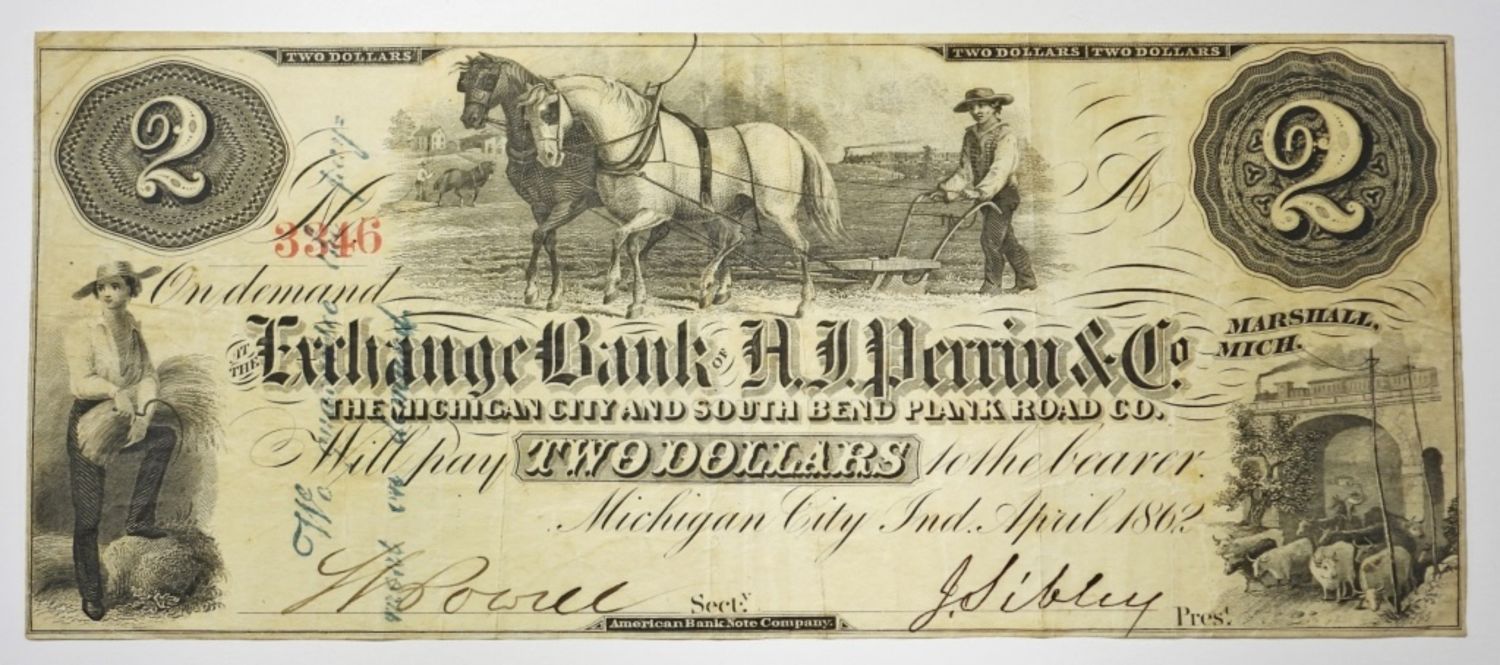 TWO DOLLARS
TWO DOLLARS TWO DOLLARS
2
2
No
3346
A
On demand
AT THE Exchange Bank OF H.J. Perrin & Co. MARSHALL, MICH.
THE MICHIGAN CITY AND SOUTH BEND PLANK ROAD CO.
Will pay TWO DOLLARS to the bearer.
Michigan City Ind. April 1862
Powell Secty. J. Sibley Prest.
American Bank Note Company.
We promise to pay
on demand